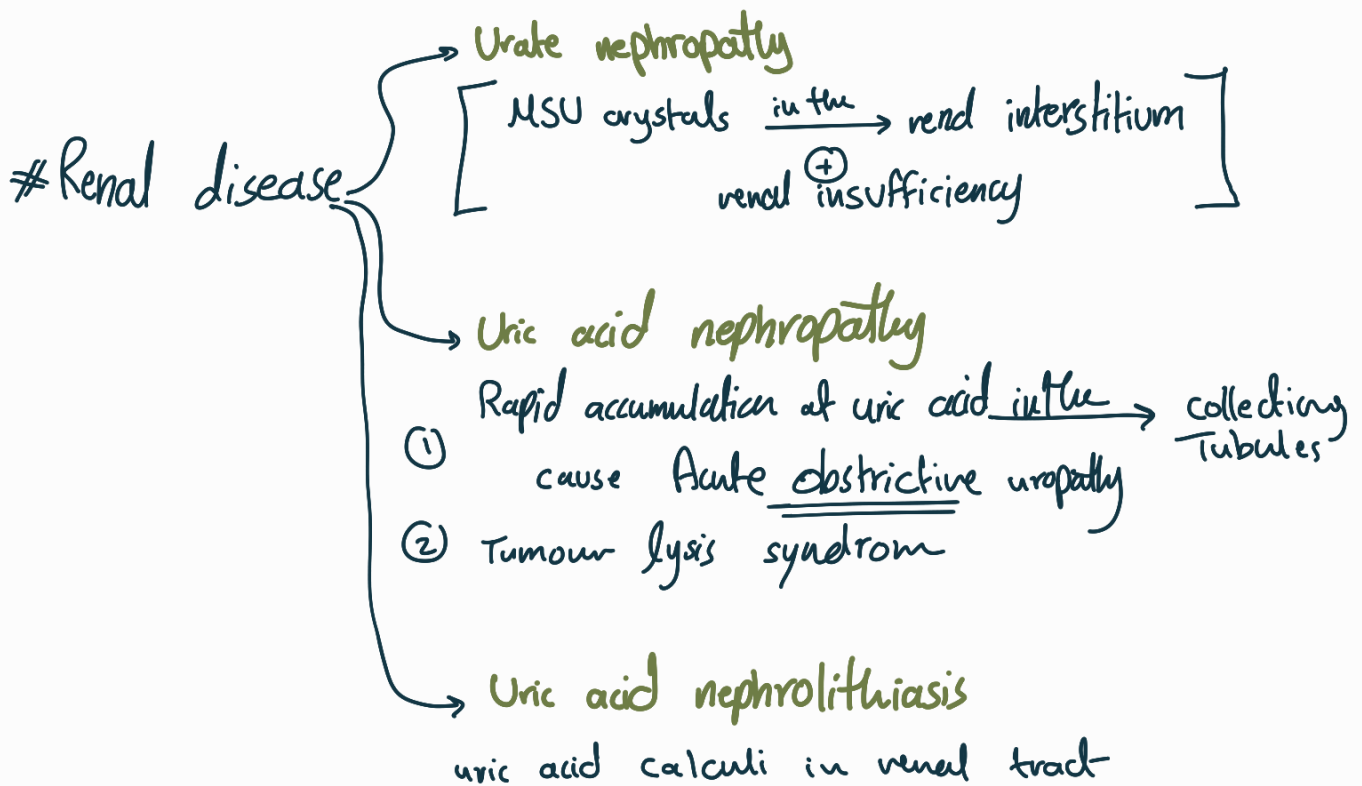 Urate nephropathy
MSU crystals in the → renal interstitium
+
renal insufficiency
#Renal disease
Uric acid nephropathy
Rapid accumulation of uric acid in the → collecting
Tubules
①
cause Acute obstrictive uropathy
② Tumour lysis syndrom
Uric acid nephrolithiasis
uric acid calculi in renal tract